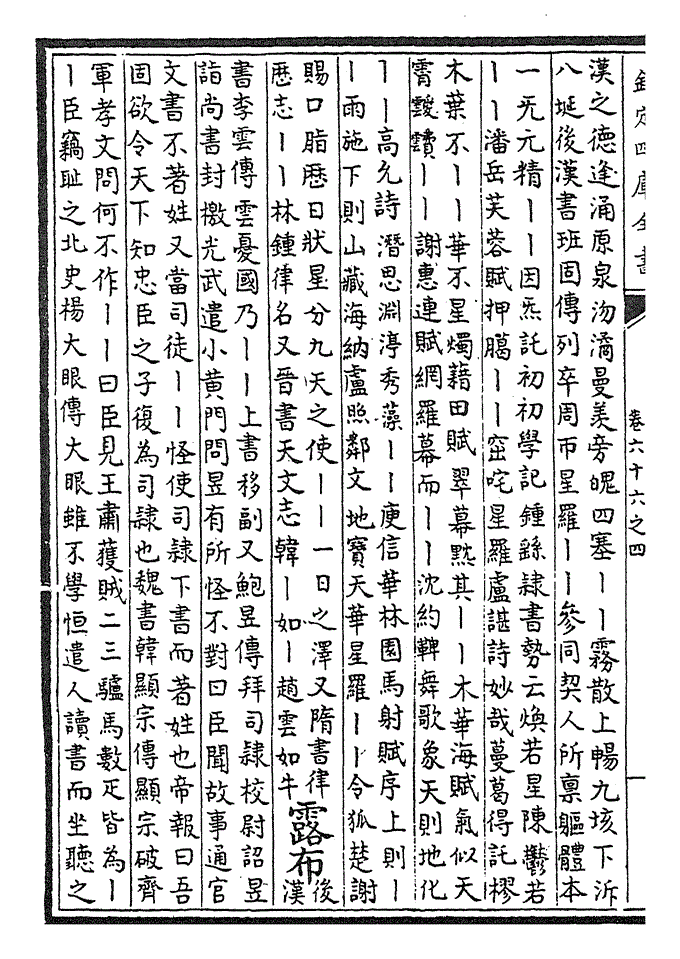 欽定四庫全書
卷六十六之四
漢之德逢涌原泉沕潏曼羡旁魄四塞丨丨霧散上暢九垓下泝
八埏後漢書班固傳列卒周帀星羅丨丨參同契人所禀軀體本
一无元精丨丨因炁託初初學記鍾繇隸書勢云煥若星陳鬱若
丨丨潘岳芙蓉賦押臈丨丨窋咤星羅盧諶詩妙哉蔓葛得託樛
木葉不丨丨華不星燭藉田賦翠幕黕其丨丨木華海賦氣似天
霄靉靅丨丨謝惠連賦網羅幕而丨丨沈約鞞舞歌象天則地化
丨丨高允詩潛思淵渟秀藻丨丨庾信華林園馬射賦序上則丨
丨雨施下則山藏海納盧照鄰文地寶天華星羅丨丨令狐楚謝
賜口脂歴日狀星分九天之使丨丨一日之澤又隋書律
歴志丨丨林鍾律名又晉書天文志韓丨如丨趙雲如牛
露布
後
漢
書李雲傳雲憂國乃丨丨上書移副又鮑昱傳拜司隸校尉詔昱
詣尚書封檄光武遣小黄門問昱有所怪不對曰臣聞故事通官
文書不著姓又當司徒丨丨怪使司隸下書而著姓也帝報曰吾
固欲令天下知忠臣之子復為司隸也魏書韓顯宗傳顯宗破齊
軍孝文問何不作丨丨曰臣見王肅獲賊二三驢馬數疋皆為丨
丨臣竊恥之北史楊大眼傳大眼雖不學恒遣人讀書而坐聽之